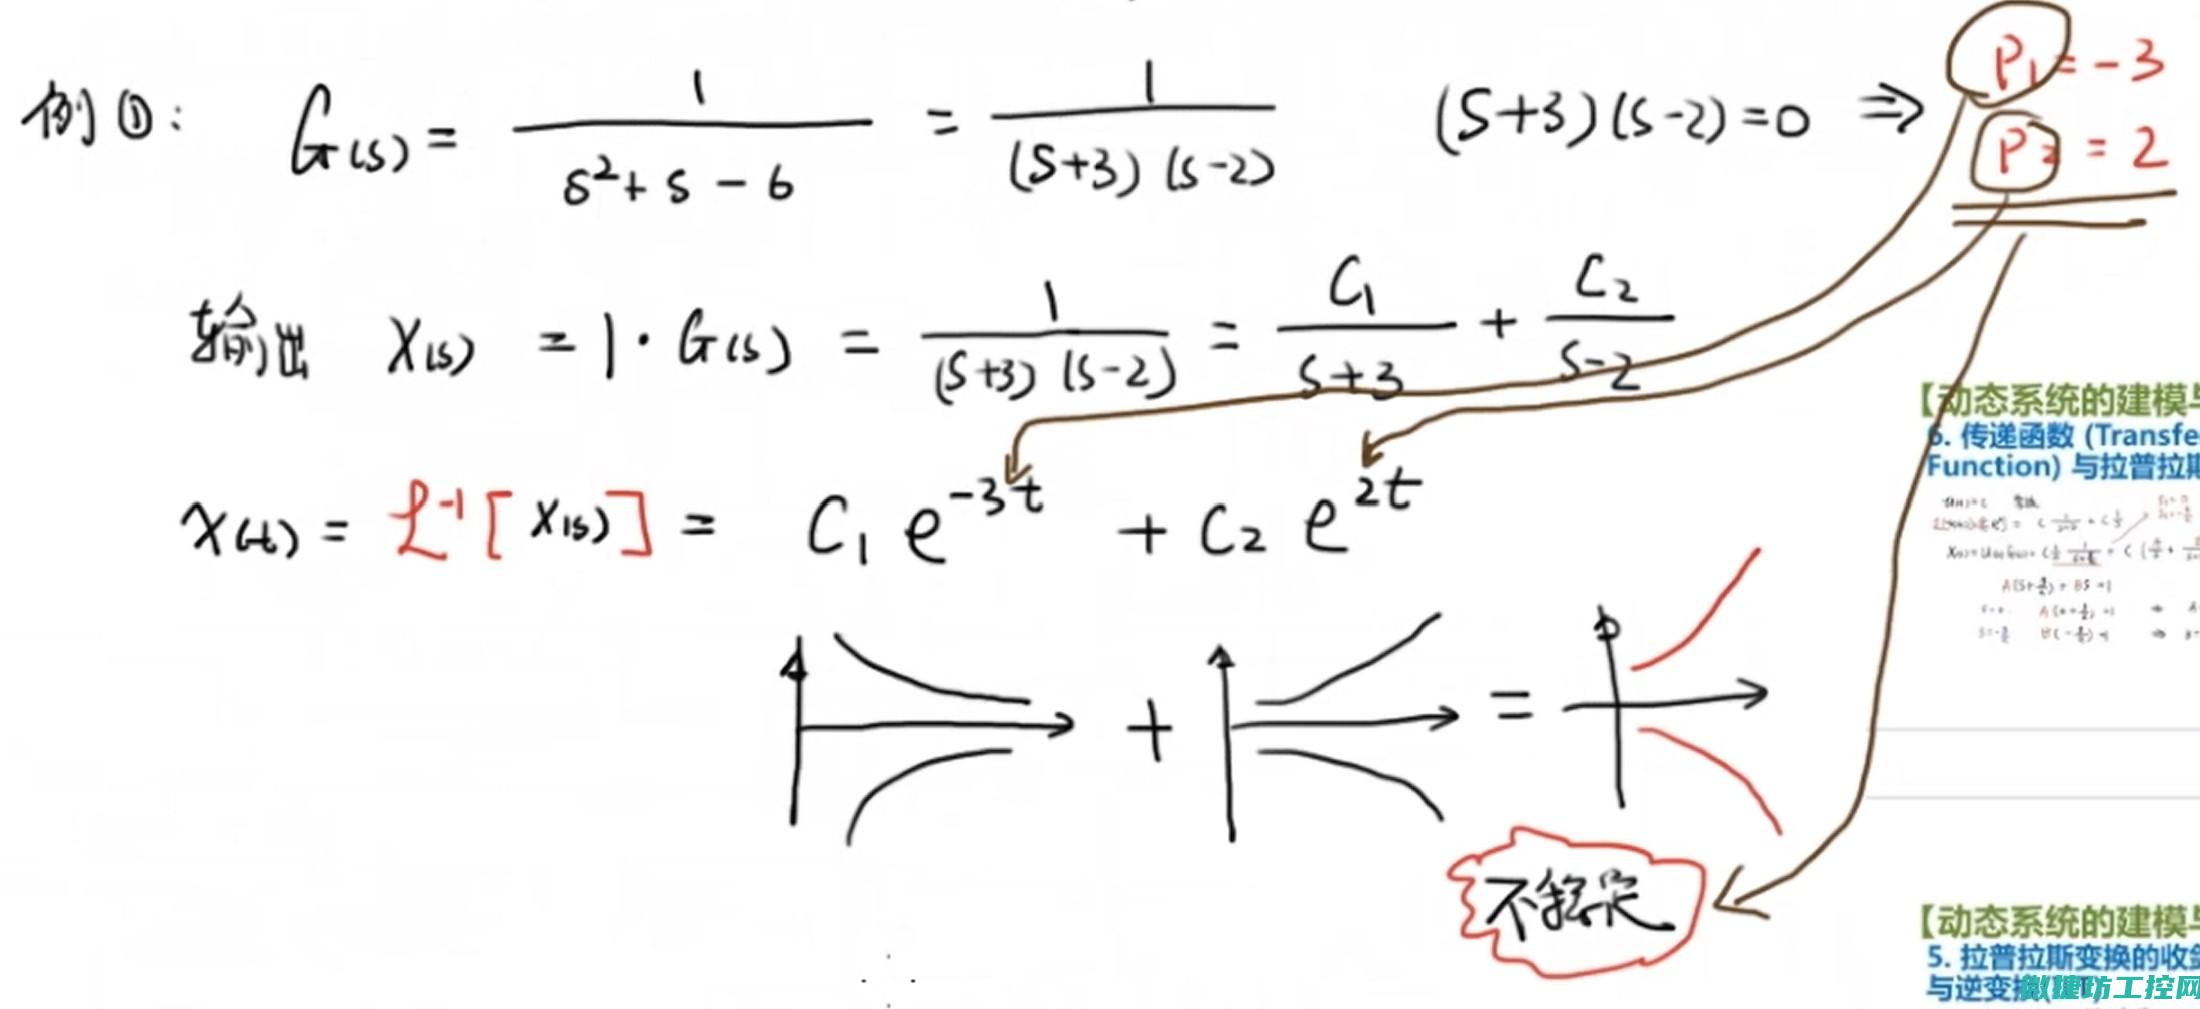 例①: G(s) = 1 / (s²+s-6) = 1 / ((s+3)(s-2)) (s+3)(s-2)=0 ⇒ P1 = -3
P2 = 2
输出 X(s) = 1·G(s) = 1 / ((s+3)(s-2)) = C1 / (s+3) + C2 / (s-2)
x(t) = ℒ⁻¹[X(s)] = C1 e^(-3t) + C2 e^(2t)
+ =
不稳定
【动态系统的建模与
6. 传递函数 (Transfe
Function) 与拉普拉斯
【动态系统的建模与
5. 拉普拉斯变换的收敛
与逆变换
微捷坊工控网